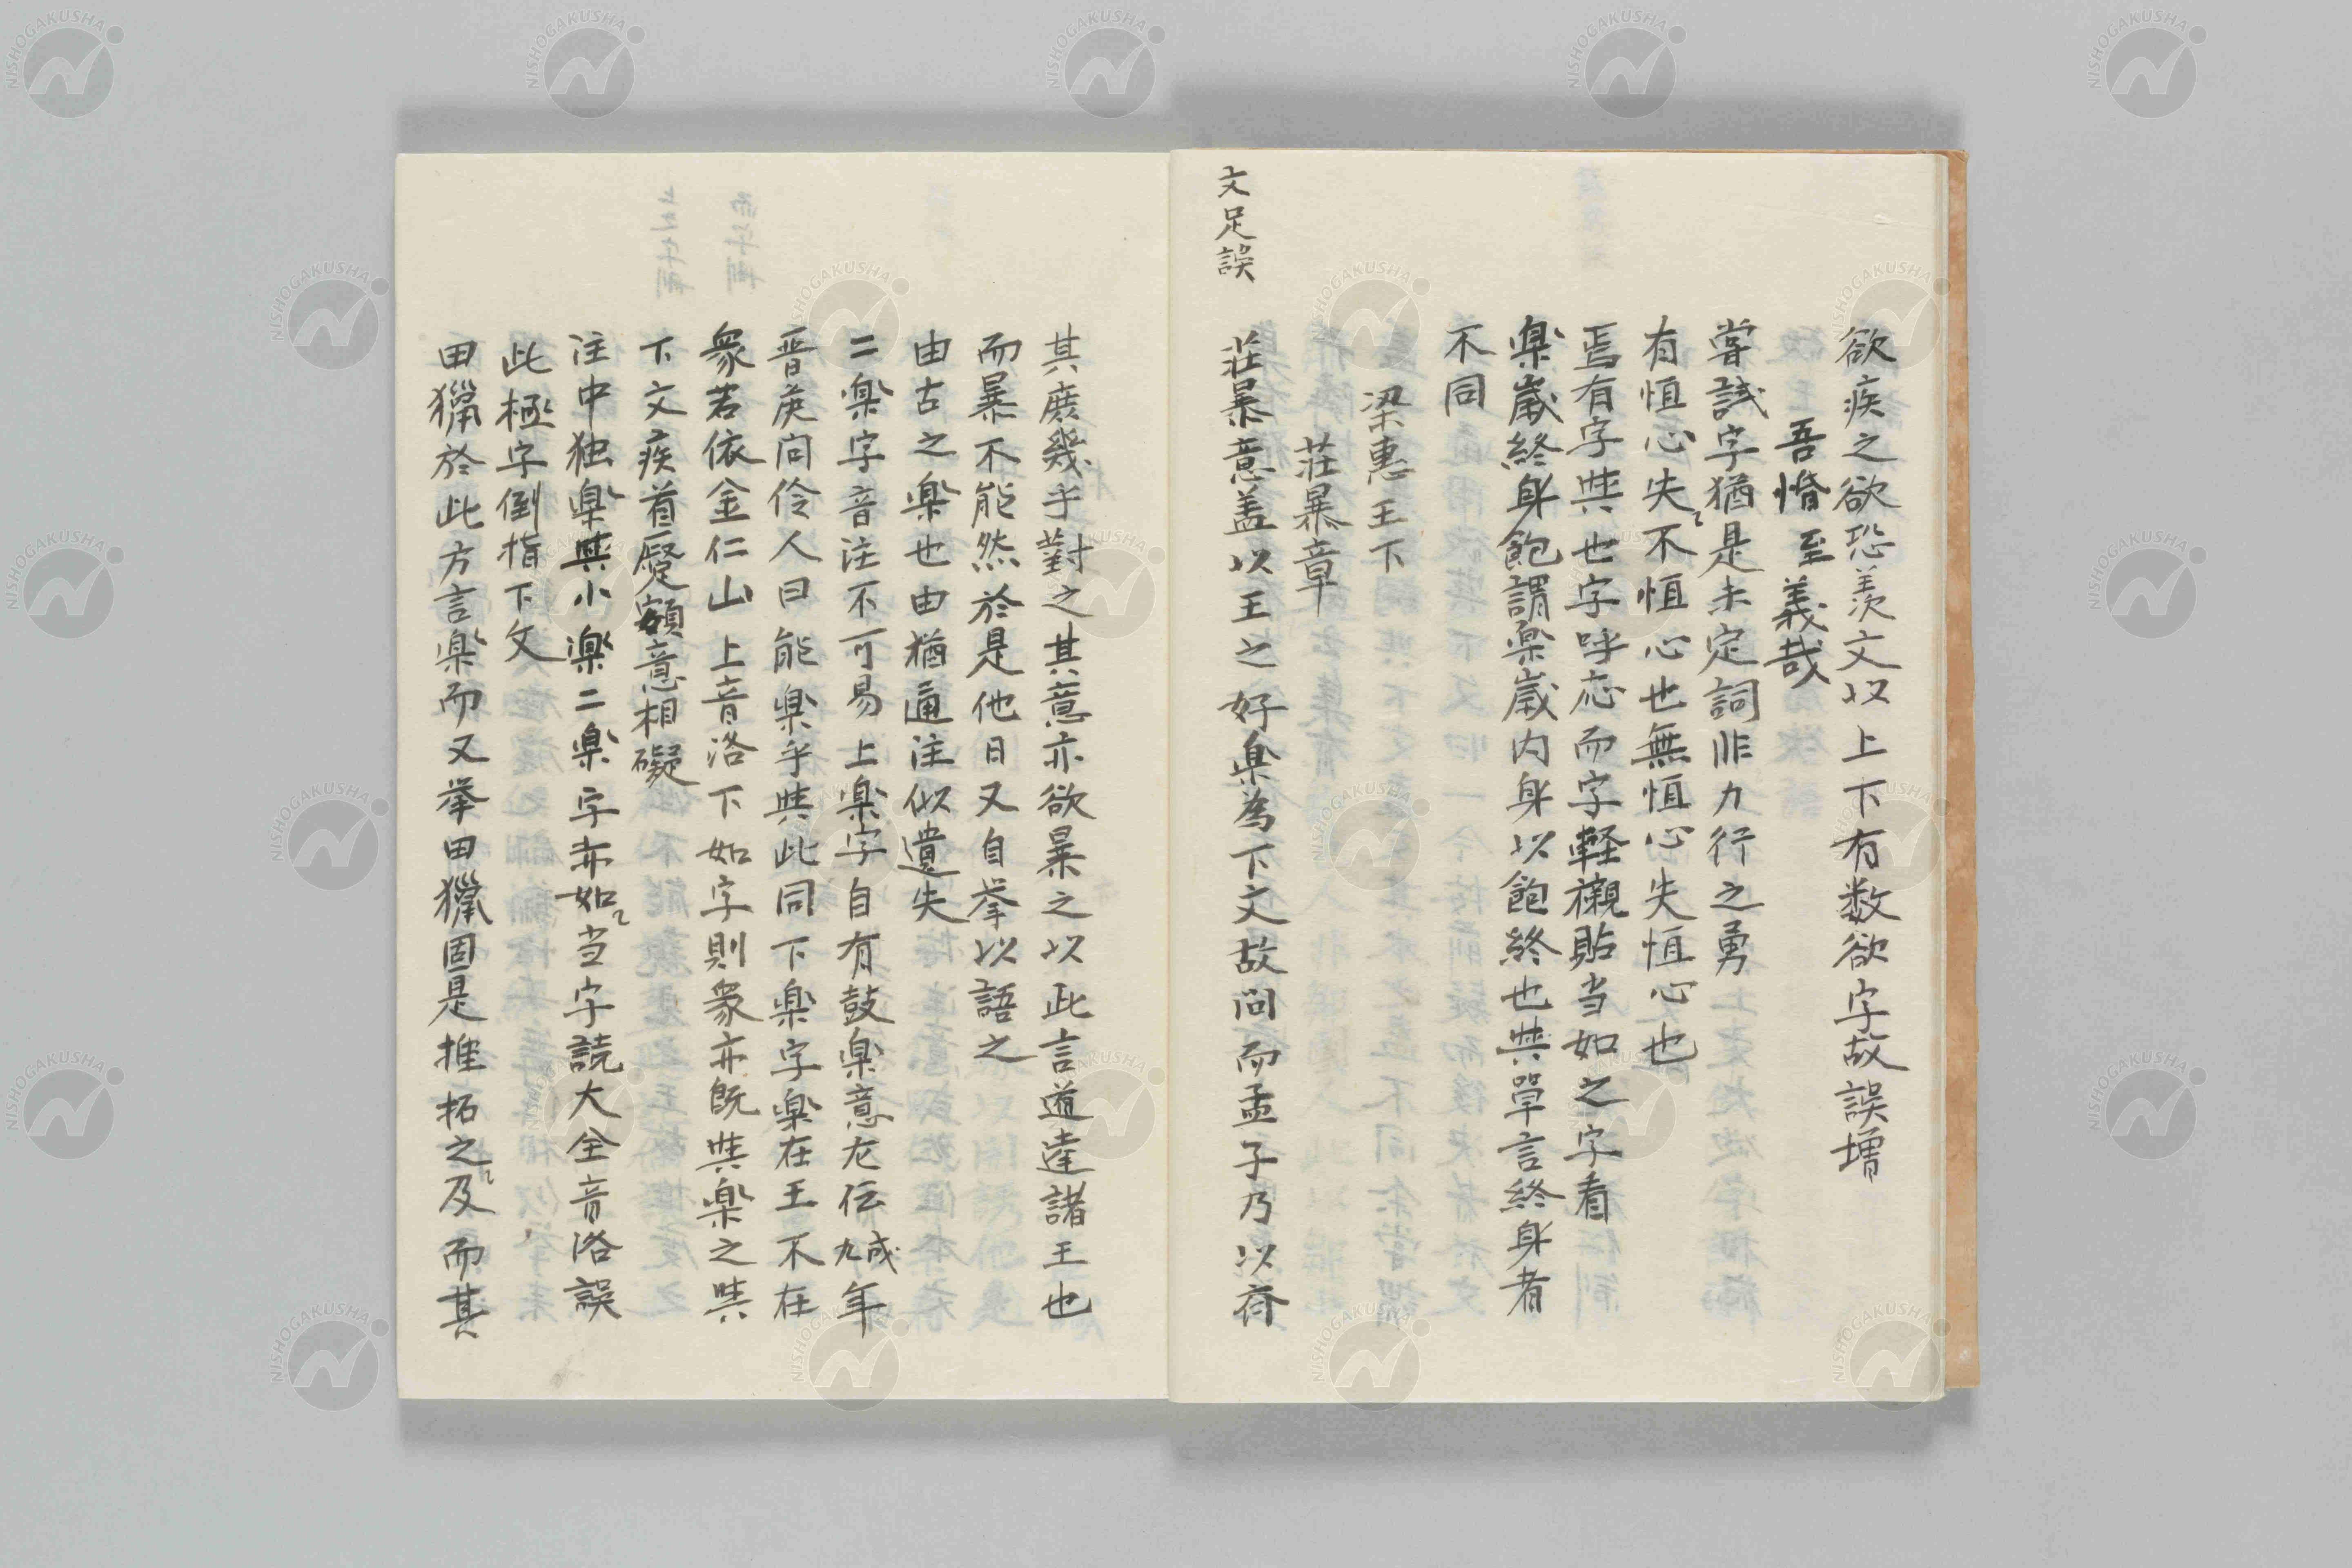 欲疾之欲恐羨文以上下有数欲字故誤増
吾惛至義哉
嘗試字猶是未定詞非力行之勇
有恒心失不恒心也無恒心失恒心也
焉有字與也字呼応而字軽襯貼当如之字看
楽歳終身飽謂楽歳内身以飽終也與單言終身者
不同
梁惠王下
莊暴章
文足誤
莊暴意盖以王之好楽為下文故問而孟子乃以斉
其庶幾乎對之其意亦欲暴之以此言道達諸王也
而暴不能然於是他日又自挙以語之
由古之楽也由猶通注似遺失
二楽字音注不可易上楽字自有鼓楽意左伝成九年
晋侯问伶人曰能楽乎與此同下楽字楽在王不在
衆若依金仁山上音洛下如字則衆亦既與楽之與
下文疾首蹙額意相礙
注中独楽與小楽二楽字亦如当字読大全音洛誤
此極字倒指下文
田獵於此方言楽而又挙田獵固是推拓之及而其
NISHOGAKUSHA